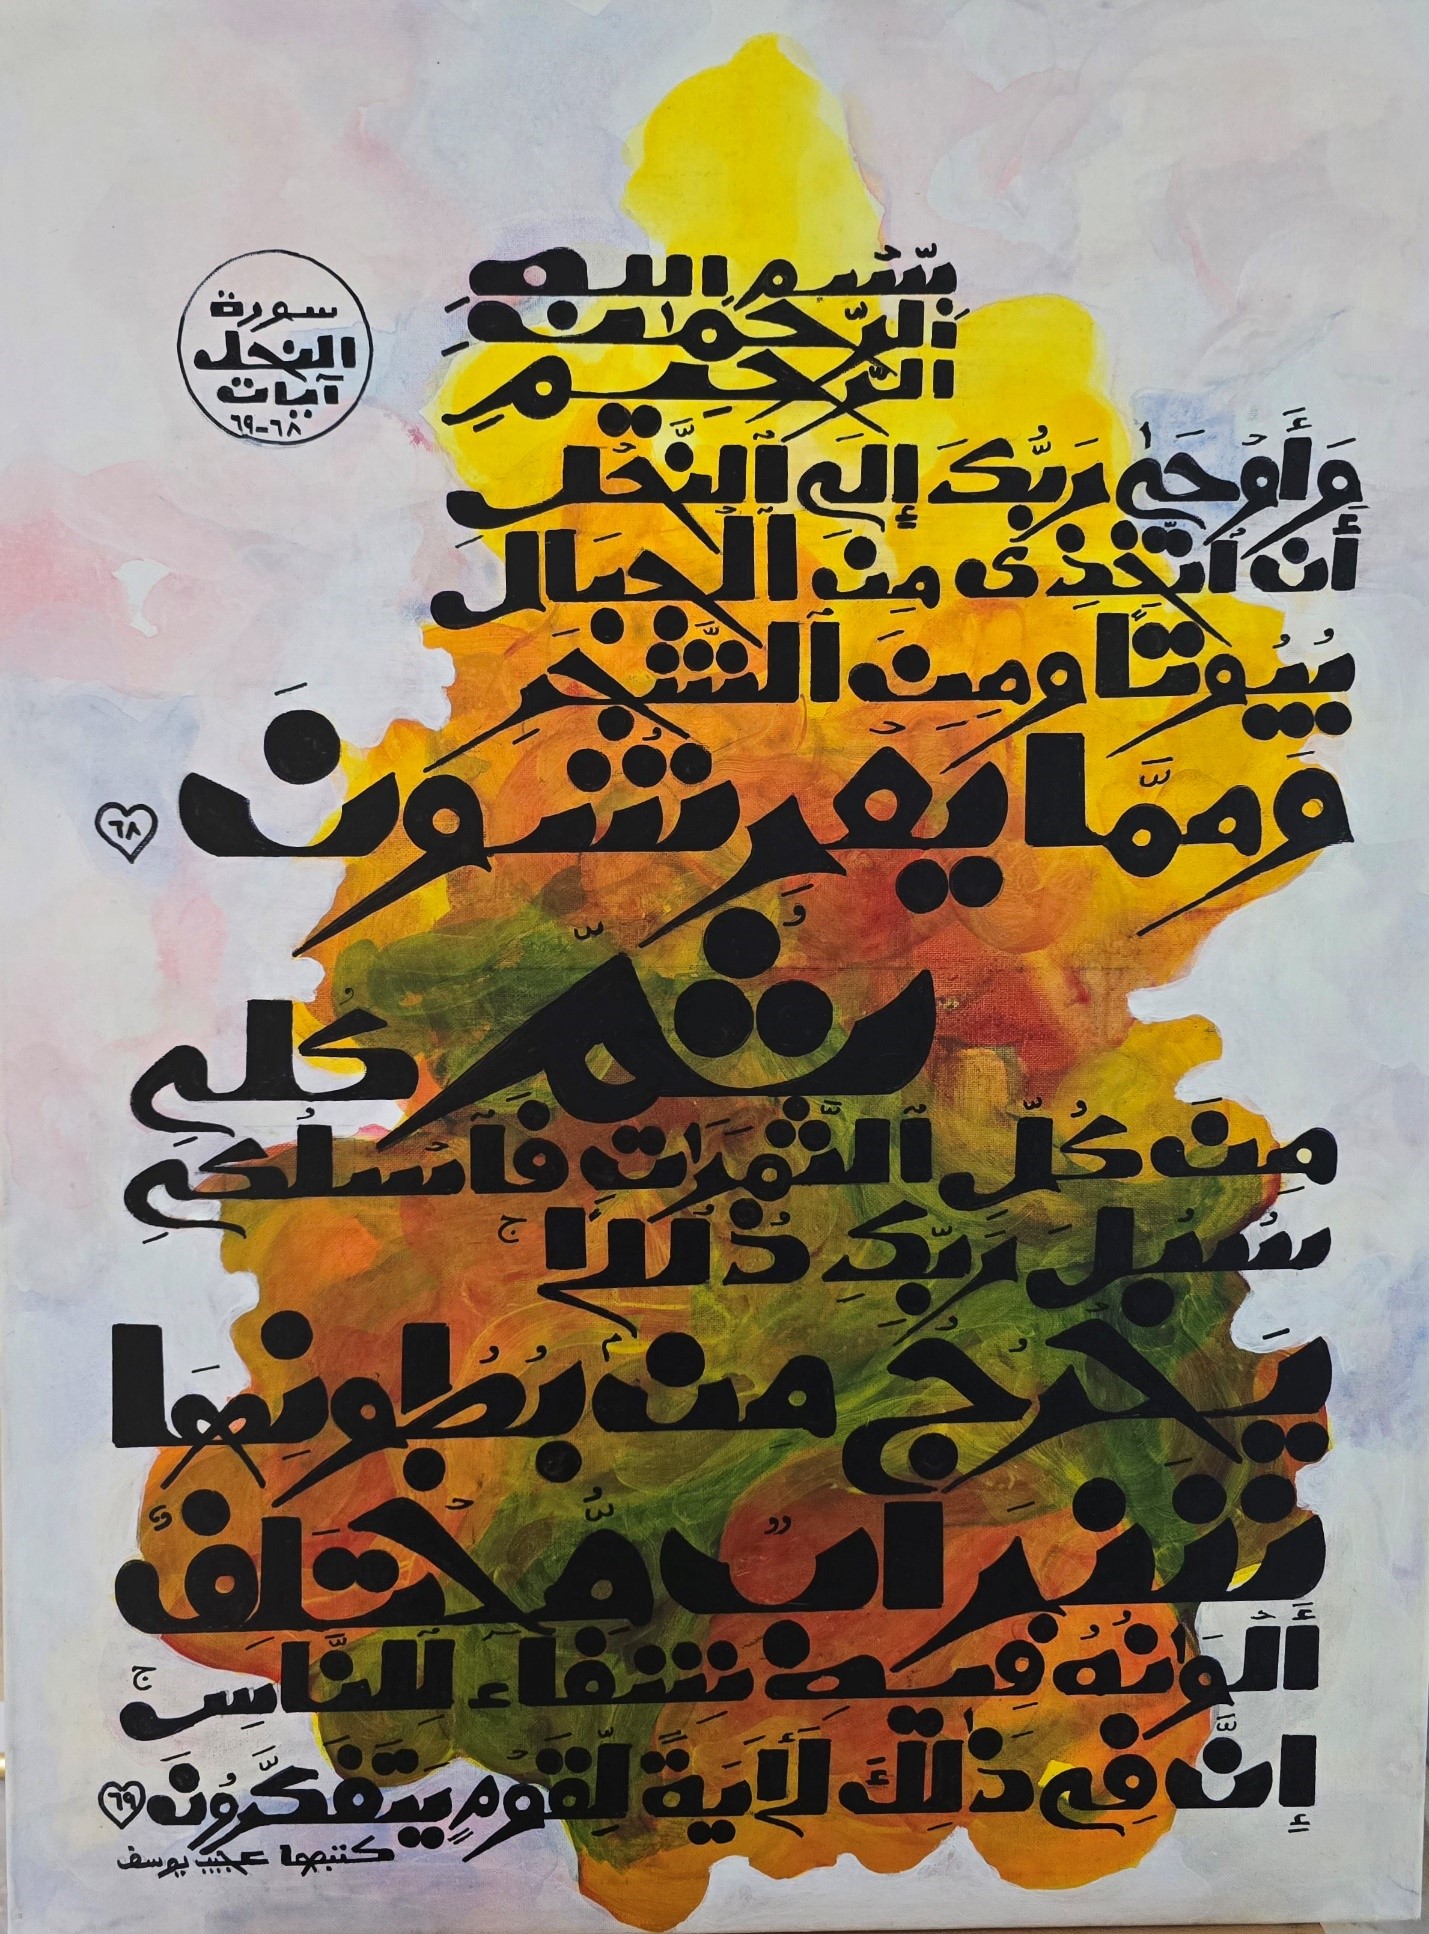 سورة
النحل
آيات
٦٨-٦٩
بِسْمِ اللهِ
الرَّحْمٰنِ
الرَّحِيمِ
وَأَوْحَىٰ رَبُّكَ إِلَى ٱلنَّحْلِ
أَنِ ٱتَّخِذِى مِنَ ٱلْجِبَالِ
بُيُوتًا وَمِنَ ٱلشَّجَرِ
وَمِمَّا يَعْرِشُونَ ٦٨
ثُمَّ
كُلِى
مِن كُلِّ ٱلثَّمَرَٰتِ فَٱسْلُكِى
سُبُلَ رَبِّكِ ذُلُلًا ۚ
يَخْرُجُ مِنۢ بُطُونِهَا
شَرَابٌ مُّخْتَلِفٌ
أَلْوَٰنُهُۥ فِيهِ شِفَآءٌ لِّلنَّاسِ ۗ
إِنَّ فِى ذَٰلِكَ لَـَٔايَةً لِّقَوْمٍ يَتَفَكَّرُونَ ٦٩
كتبها عجيب يوسف